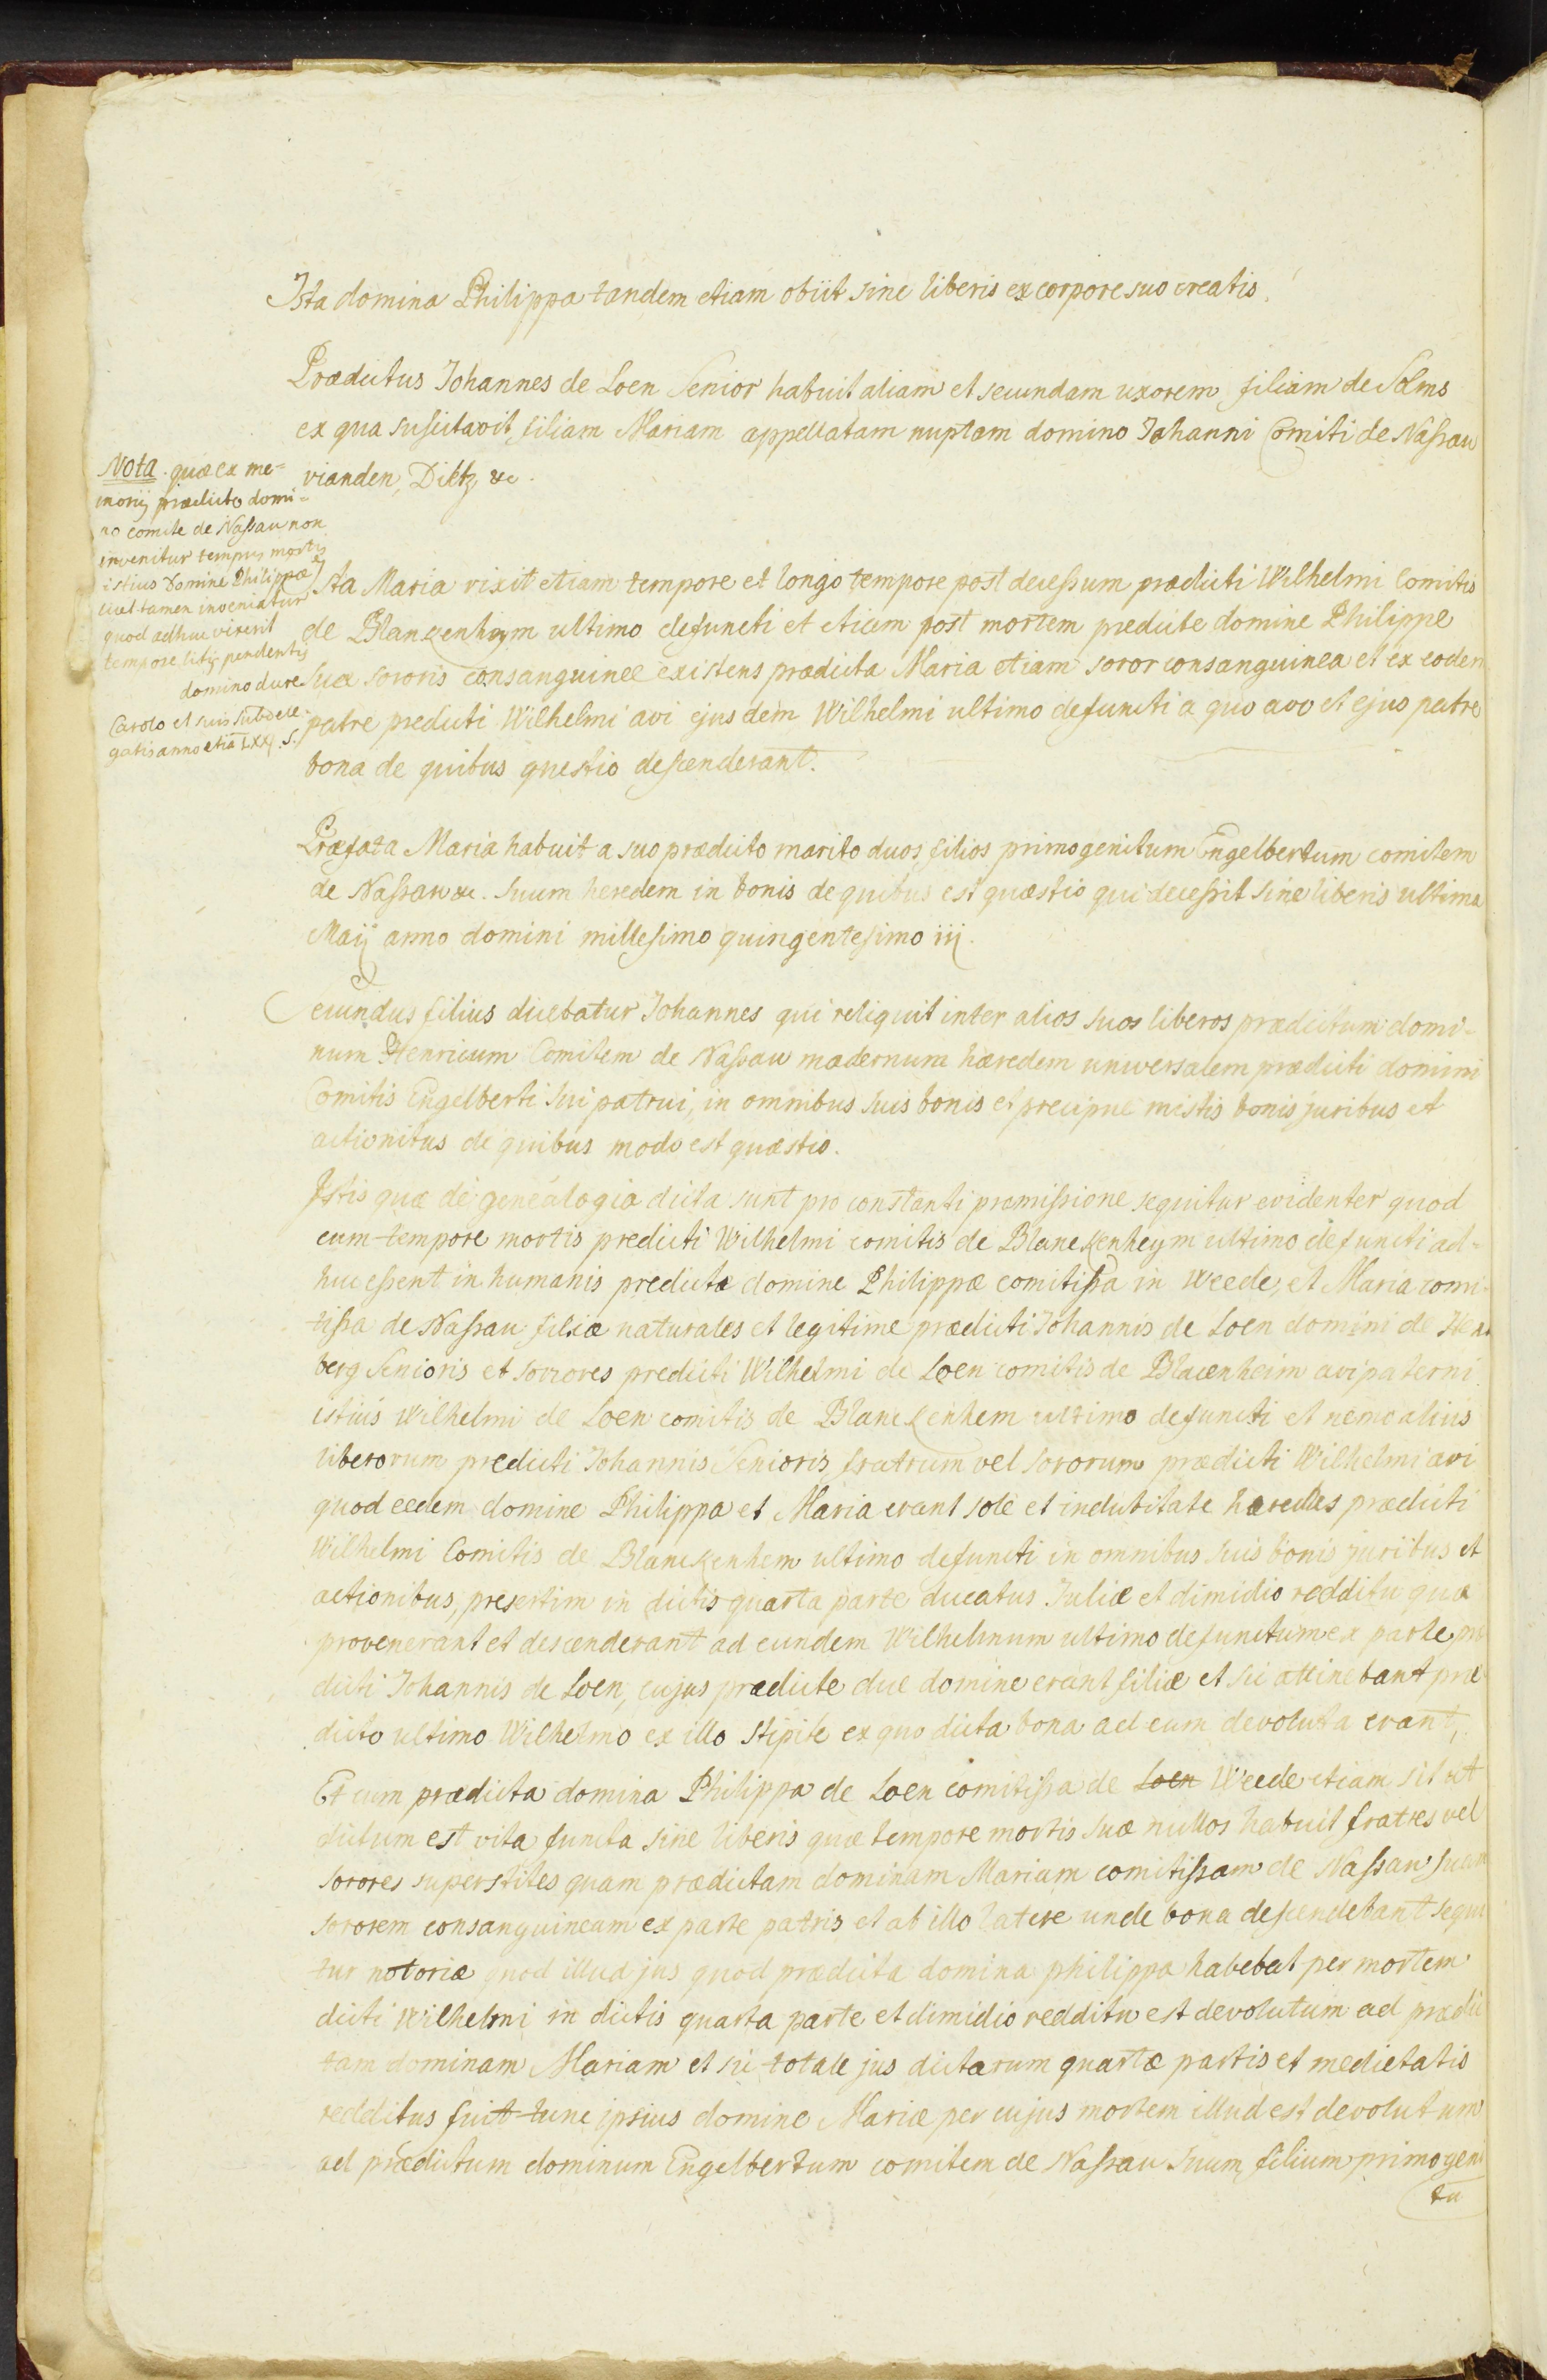 Ista domina Philippa tandem etiam obiit sine liberis ex corpore suo creatis.
Prædictus Johannes de Loen Senior habuit aliam et secundam uxorem, filiam de Solms
ex qua suscitavit, filiam Mariam appellatam nuptam domino Johanni Comiti de Nassau
vianden, Dietz &c.
Nota. quia ex me=
morij prædicto domi=
no comite de Nassau non
invenitur tempus mortis
istius Domine Philippæ
licet tamen inveniatur
quod adhuc vixerit
tempore litis pendentis
domino dure
Carolo et suis subdele=
gatis anno etia LXXj. S.
Ista Maria vixit etiam tempore et longo tempore post decessum prædicti Wilhelmi Comitis
de Blanckenheym ultimo defuncti et etiam post mortem predicte domine Philippe
suæ sororis consanguinee existens prædicta Maria etiam soror consanguinea et ex eodem
patre predicti Wilhelmi avi ejusdem Wilhelmi ultimo defuncti a quo avo et ejus patre
bona de quibus questio descenderant.
Præfata Maria habuit a suo prædicto marito duos filios primogenitum Engelbertum comitem
de Nassau &c. suum heredem in bonis de quibus est quæstio qui decessit sine liberis ultima
Maij anno domini millesimo quingentesimo iiij.
Secundus filius dicebatur Johannes qui reliquit inter alios suos liberos prædictum domi=
num Henricum Comitem de Nassau modernum hæredem universalem prædicti domini
Comitis Engelberti sui patrui, in omnibus suis bonis et precipue in istis bonis juribus et
actionibus de quibus modo est quæstio.
Istis quæ de genealogia dicta sunt pro constanti præmissione sequitur evidenter quod
cum tempore mortis predicti Wilhelmi comitis de Blanckenheym ultimo defuncti ad=
huc essent in humanis predicta domine Philippæ comitissa in Weede, et Maria comi=
tissa de Nassau filiæ naturales et legitime prædicti Johannis de Loen domini de Hens
berg Senioris et sorrores predicti Wilhelmi de Loen comitis de Blacenheim avi paterni
istius Wilhelmi de Loen comitis de Blanckenhem ultimo defuncti et nemo alius
liberorum predicti Johannis Senioris, fratrum vel sororum prædicti Wilhelmi avi
quod eedem domine Philippa et Maria erant sole et indubitate hæredes prædicti
Wilhelmi Comitis de Blanckenhem ultimo defuncti in omnibus suis bonis juribus et
actionibus, presertim in dictis quarta parte ducatus Juliæ et dimidio redditu quæ
provenerant et descenderant ad eundem Wilhelmum ultimo defunctum ex parte præ
dicti Johannis de Loen, cujus prædicte due domine erant filiæ et sic attinebant præ
dicto ultimo Wilhelmo ex illo stipite ex quo dicta bona ad eum devoluta erant,
Et cum prædicta domina Philippa de Loen comitissa de Loen Weede etiam sit ut
dictum est vita functa sine liberis quæ tempore mortis suæ nullos habuit fratres vel
sorores superstites quam prædictam dominam Mariam comitissam de Nassau suam
sororem consanguineam ex parte patris et ab illo latere unde bona descendebant sequi
tur notoriæ quod illud jus quod prædicta domina philippa habebat per mortem
dicti Wilhelmi in dictis quarta parte et dimidio redditu est devolutum ad prædic
tam dominam Mariam et sic totale jus dictarum quartæ partis et medietatis
redditus fuit tunc ipsius domine Mariæ per cujus mortem illud est devolutum
ad prædictum dominum Engelbertum comitem de Nassau suum filium primogeni
tu